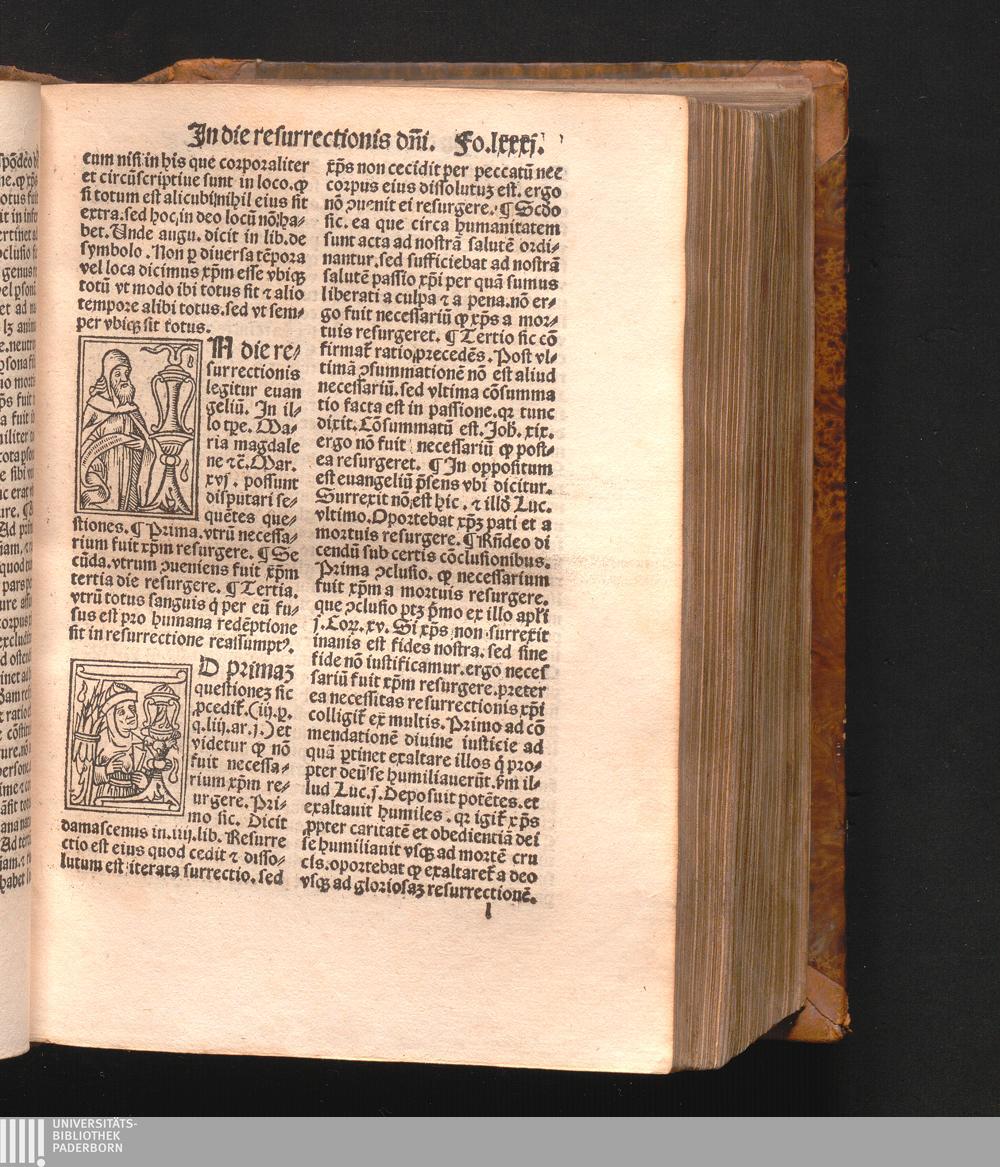 In die resurrectionis dñi. Fo.lxxxj.
eum nisi in his que corporaliter
et circũscriptiue sunt in loco.ꝙ
si totum est alicubi/nihil eius sit
extra.sed hoc,in deo locũ nõ ha-
bet. Unde augu. dicit in lib.de
symbolo. Non ꝑ diuersa tẽpora
vel loca dicimus xp̃m esse vbiqꝫ
totũ vt modo ibi totus sit ⁊ alio
tempore alibi totus.sed vt sem-
per vbiqꝫ sit totus.
IN die re/
surrectionis
legitur euan
geliũ. In il-
lo tꝑe. Ma-
ria magdale
ne ⁊c̃. Mar.
xvj. possunt
disputari se-
quẽtes que-
stiones. ¶ Prima.vtrũ necessa-
rium fuit xp̃m resurgere. ¶ Se
cũda.vtrum ↄueniens fuit xp̃m
tertia die resurgere. ¶ Tertia.
vtrũ totus sanguis q̃ per eũ fu-
sus est pro humana redẽptione
sit in resurrectione reassumptꝰ.
AD primaꝫ
questionez sic
ꝓcedit̃. (iij.ꝑ.
q.liij.ar.j.) et
videtur ꝙ nõ
fuit necessa-
rium xp̃m re-
urgere. Pri-
mo sic. Dicit
damascenus in.iiij.lib. Resurre
ctio est eius quod cedit ⁊ disso-
lutum est iterata surrectio. sed
xp̃s non cecidit per peccatũ nec
corpus eius dissolutuꝫ est. ergo
nõ ↄuenit ei resurgere. ¶ Scd̃o
sic. ea que circa humanitatem
sunt acta ad nostrã salutẽ ordi-
nantur.sed sufficiebat ad nostrã
salutẽ passio xp̃i per quã sumus
liberati a culpa ⁊ a pena.nõ er-
go fuit necessariũ ꝙ xp̃s a mor-
tuis resurgeret. ¶ Tertio sic cõ
firmat̃ ratio precedẽs. Post vl-
timã ↄsummationẽ nõ est aliud
necessariũ. sed vltima cõsumma
tio facta est in passione.qꝛ tunc
dixit. Cõsummatũ est. Joh. xix.
ergo nõ fuit necessariũ ꝙ post-
ea resurgeret. ¶ In oppositum
est euangeliũ p̃sens vbi dicitur.
Surrexit nõ est hic. ⁊ illd̃ Luc.
vltimo. Oportebat xp̃ꝫ pati et a
mortuis resurgere. ¶ Rñdeo di
cendũ sub certis cõclusionibus.
Prima ↄclusio. ꝙ necessarium
fuit xp̃m a mortuis resurgere.
que ↄclusio ptꝫ p̃mo ex illo apl̃i
j. Coꝛ. xv. Si xp̃s non surrexit
inanis est fides nostra. sed sine
fide nõ iustificamur.ergo necef
sariũ fuit xp̃m resurgere.preter
ea necessitas resurrectionis xp̃i
colligit̃ ex multis. Primo ad cõ
mendationẽ diuine iusticie ad
quã ꝑtinet exaltare illos q̃ pro-
pter deũ se humiliauerũt. p̃m il-
lud Luc.j. Deposuit potẽtes.et
exaltauit humiles. qꝛ igit̃ xp̃s
ꝓpter caritatẽ et obedientiã dei
se humiliauit vsqꝫ ad mortẽ cru
cis.oportebat ꝙ exaltaret̃ a deo
vsqꝫ ad gloriosaꝫ resurrectionẽ.
l
UNIVERSITÄTS-
BIBLIOTHEK
PADERBORN